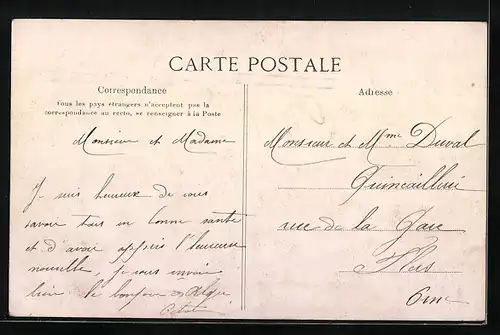 CARTE POSTALE
Correspondance
Tous les pays étrangers n'acceptent pas la
correspondance au recto, se renseigner à la Poste
Monsieur et Madame
Je suis heureux de vous
savoir tous en bonne santé
et d'avoir appris l'heureuse
nouvelle, je vous envoie
bien le bonjour
Adresse
Monsieur et Mme Duval
Quincaillerie
rue de la Gare
Flers
Orne